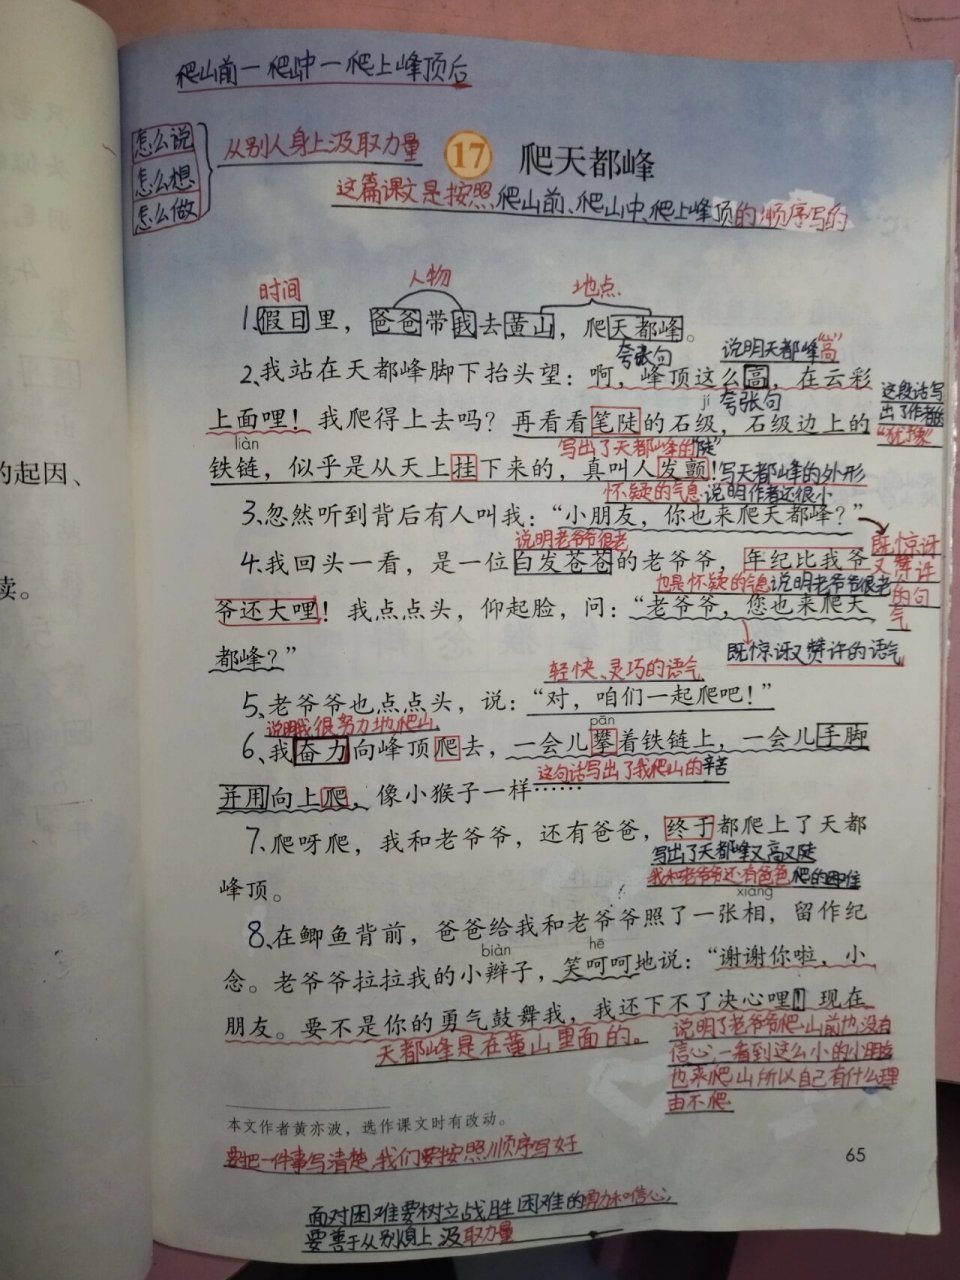 爬山前一爬山中一爬上峰顶后
怎么说
怎么想
怎么做
从别人身上汲取力量
17 爬天都峰
这篇课文是按照爬山前、爬山中、爬上峰顶的顺序写的
时间 人物 地点
1、假日里，爸爸带我去黄山，爬天都峰。
夸张句 说明天都峰“高”
2、我站在天都峰脚下抬头望：啊，峰顶这么高，在云彩
jí 夸张句
上面哩！我爬得上去吗？再看看笔陡的石级，石级边上的
这段话写
出了作者的
“犹豫”
liàn 写出了天都峰的“陡”
铁链，似乎是从天上挂下来的，真叫人发颤！写天都峰的外形
怀疑的气息 说明作者还很小
3、忽然听到背后有人叫我：“小朋友，你也来爬天都峰？”
既惊讶
又赞许
的句
气
说明老爷爷很老
4、我回头一看，是一位白发苍苍的老爷爷，年纪比我爷
也是怀疑的气息 说明老爷爷很老
爷还大哩！我点点头，仰起脸，问：“老爷爷，您也来爬天
都峰？”
既惊讶又赞许的语气
轻快、灵巧的语气
5、老爷爷也点点头，说：“对，咱们一起爬吧！”
说明我很努力地爬山 pān
6、我奋力向峰顶爬去，一会儿攀着铁链上，一会儿手脚
这句话写出了我爬山的辛苦
并用向上爬，像小猴子一样……
7、爬呀爬，我和老爷爷，还有爸爸，终于都爬上了天都
写出了天都峰又高又陡
峰顶。
我和老爷爷还有爸爸爬的困难
xiàng
8、在鲫鱼背前，爸爸给我和老爷爷照了一张相，留作纪
biàn hē
念。老爷爷拉拉我的小辫子，笑呵呵地说：“谢谢你啦，小
朋友。要不是你的勇气鼓舞我，我还下不了决心哩！现在
天都峰是在黄山里面的。
说明了老爷爷爬山前也没有
信心，一看到这么小的小朋友
也来爬山所以自己有什么理
由不爬
本文作者黄亦波，选作课文时有改动。
要把一件事写清楚，我们要按照顺序写好
65
面对困难要树立战胜困难的勇力和信心，
要善于从别人身上汲取力量
的起因、
读。